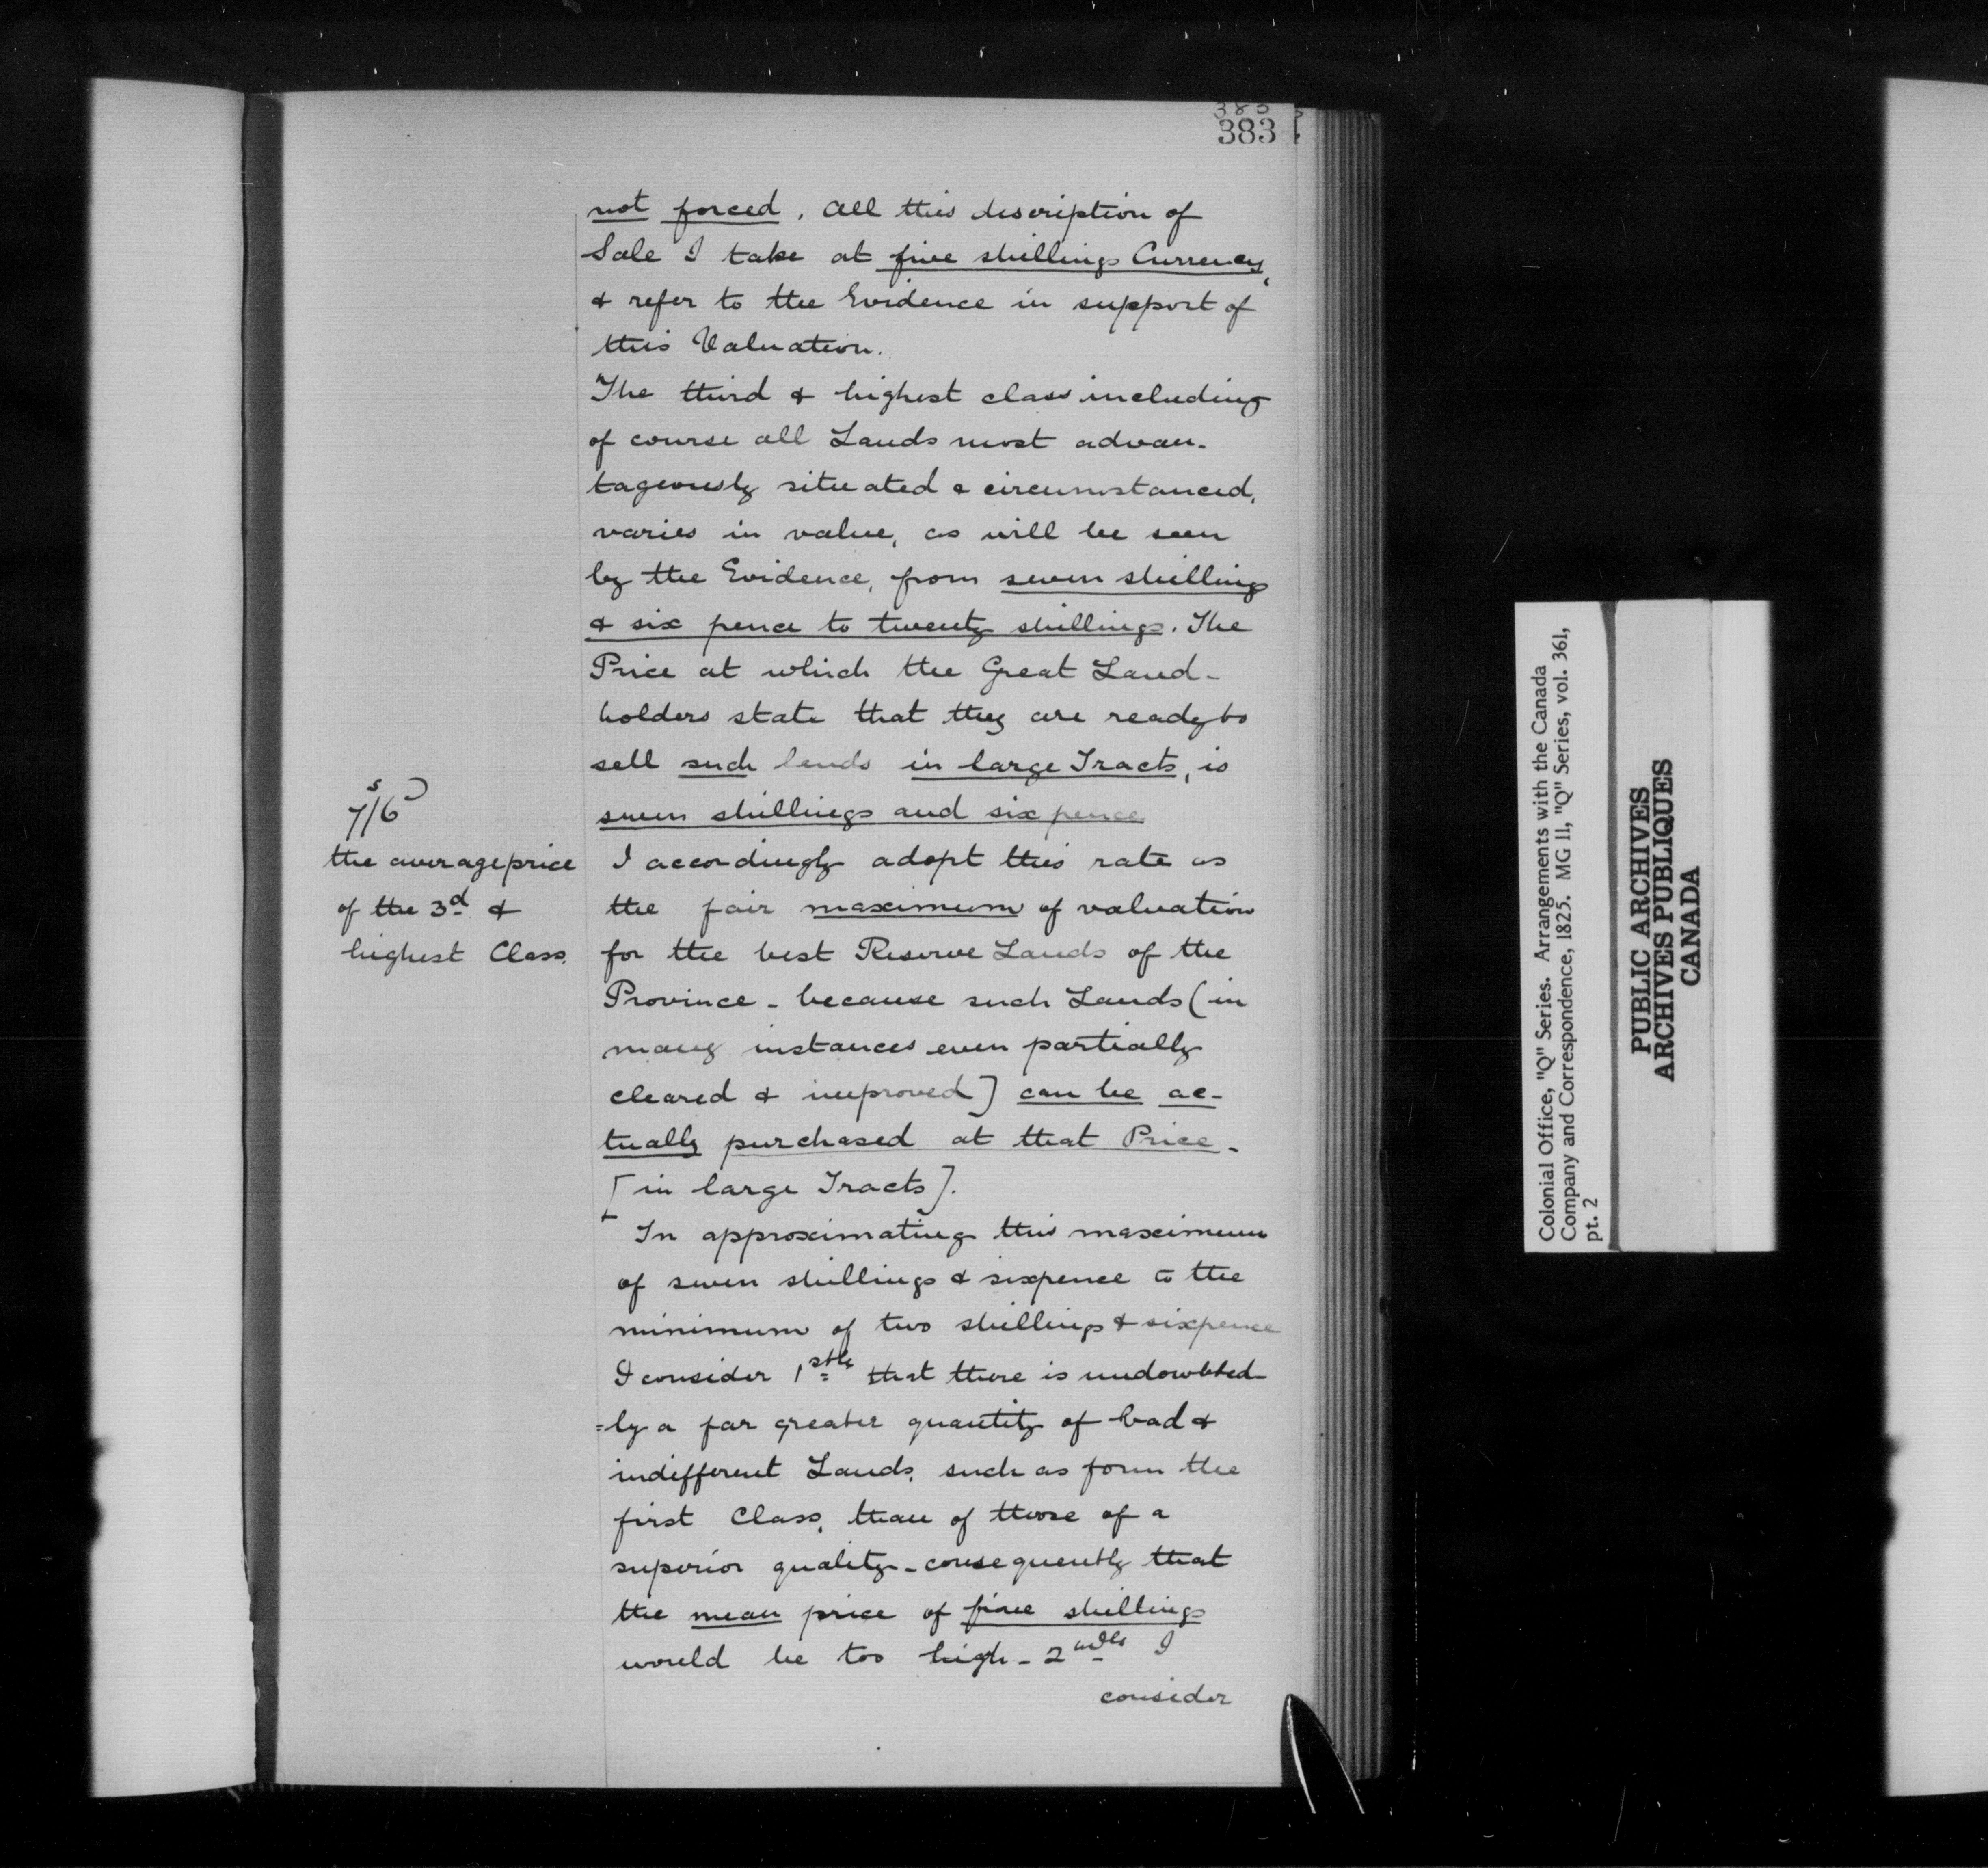 383
383
not forced. All this description of
Sale I take at five shillings Currency,
& refer to the Evidence in support of
this Valuation.
The third & highest class including
of course all Lands most advan-
tageously situated & circumstanced,
varies in value, as will be seen
by the Evidence, from seven shillings
& six pence to twenty shillings. The
Price at which the Great Land-
holders state that they are ready to
sell such lands in large Tracts, is
seven shillings and six pence
7s/6D
the average price
of the 3d &
highest Class.
I accordingly adopt this rate as
the fair maximum of valuation
for the best Reserve Lands of the
Province - because such Lands (in
many instances even partially
cleared & improved] can be ac-
tually purchased at that Price -
[in large Tracts].
In approximating this maximum
of seven shillings & sixpence to the
minimum of two shillings & sixpence
I consider 1stly that there is undoubted-
=ly a far greater quantity of bad &
indifferent Lands, such as form the
first Class, than of those of a
superior quality - consequently that
the mean price of five shillings
would be too high - 2ndly I
consider
Colonial Office, "Q" Series. Arrangements with the Canada
Company and Correspondence, 1825. MG 11, "Q" Series, vol. 361,
pt. 2
PUBLIC ARCHIVES
ARCHIVES PUBLIQUES
CANADA